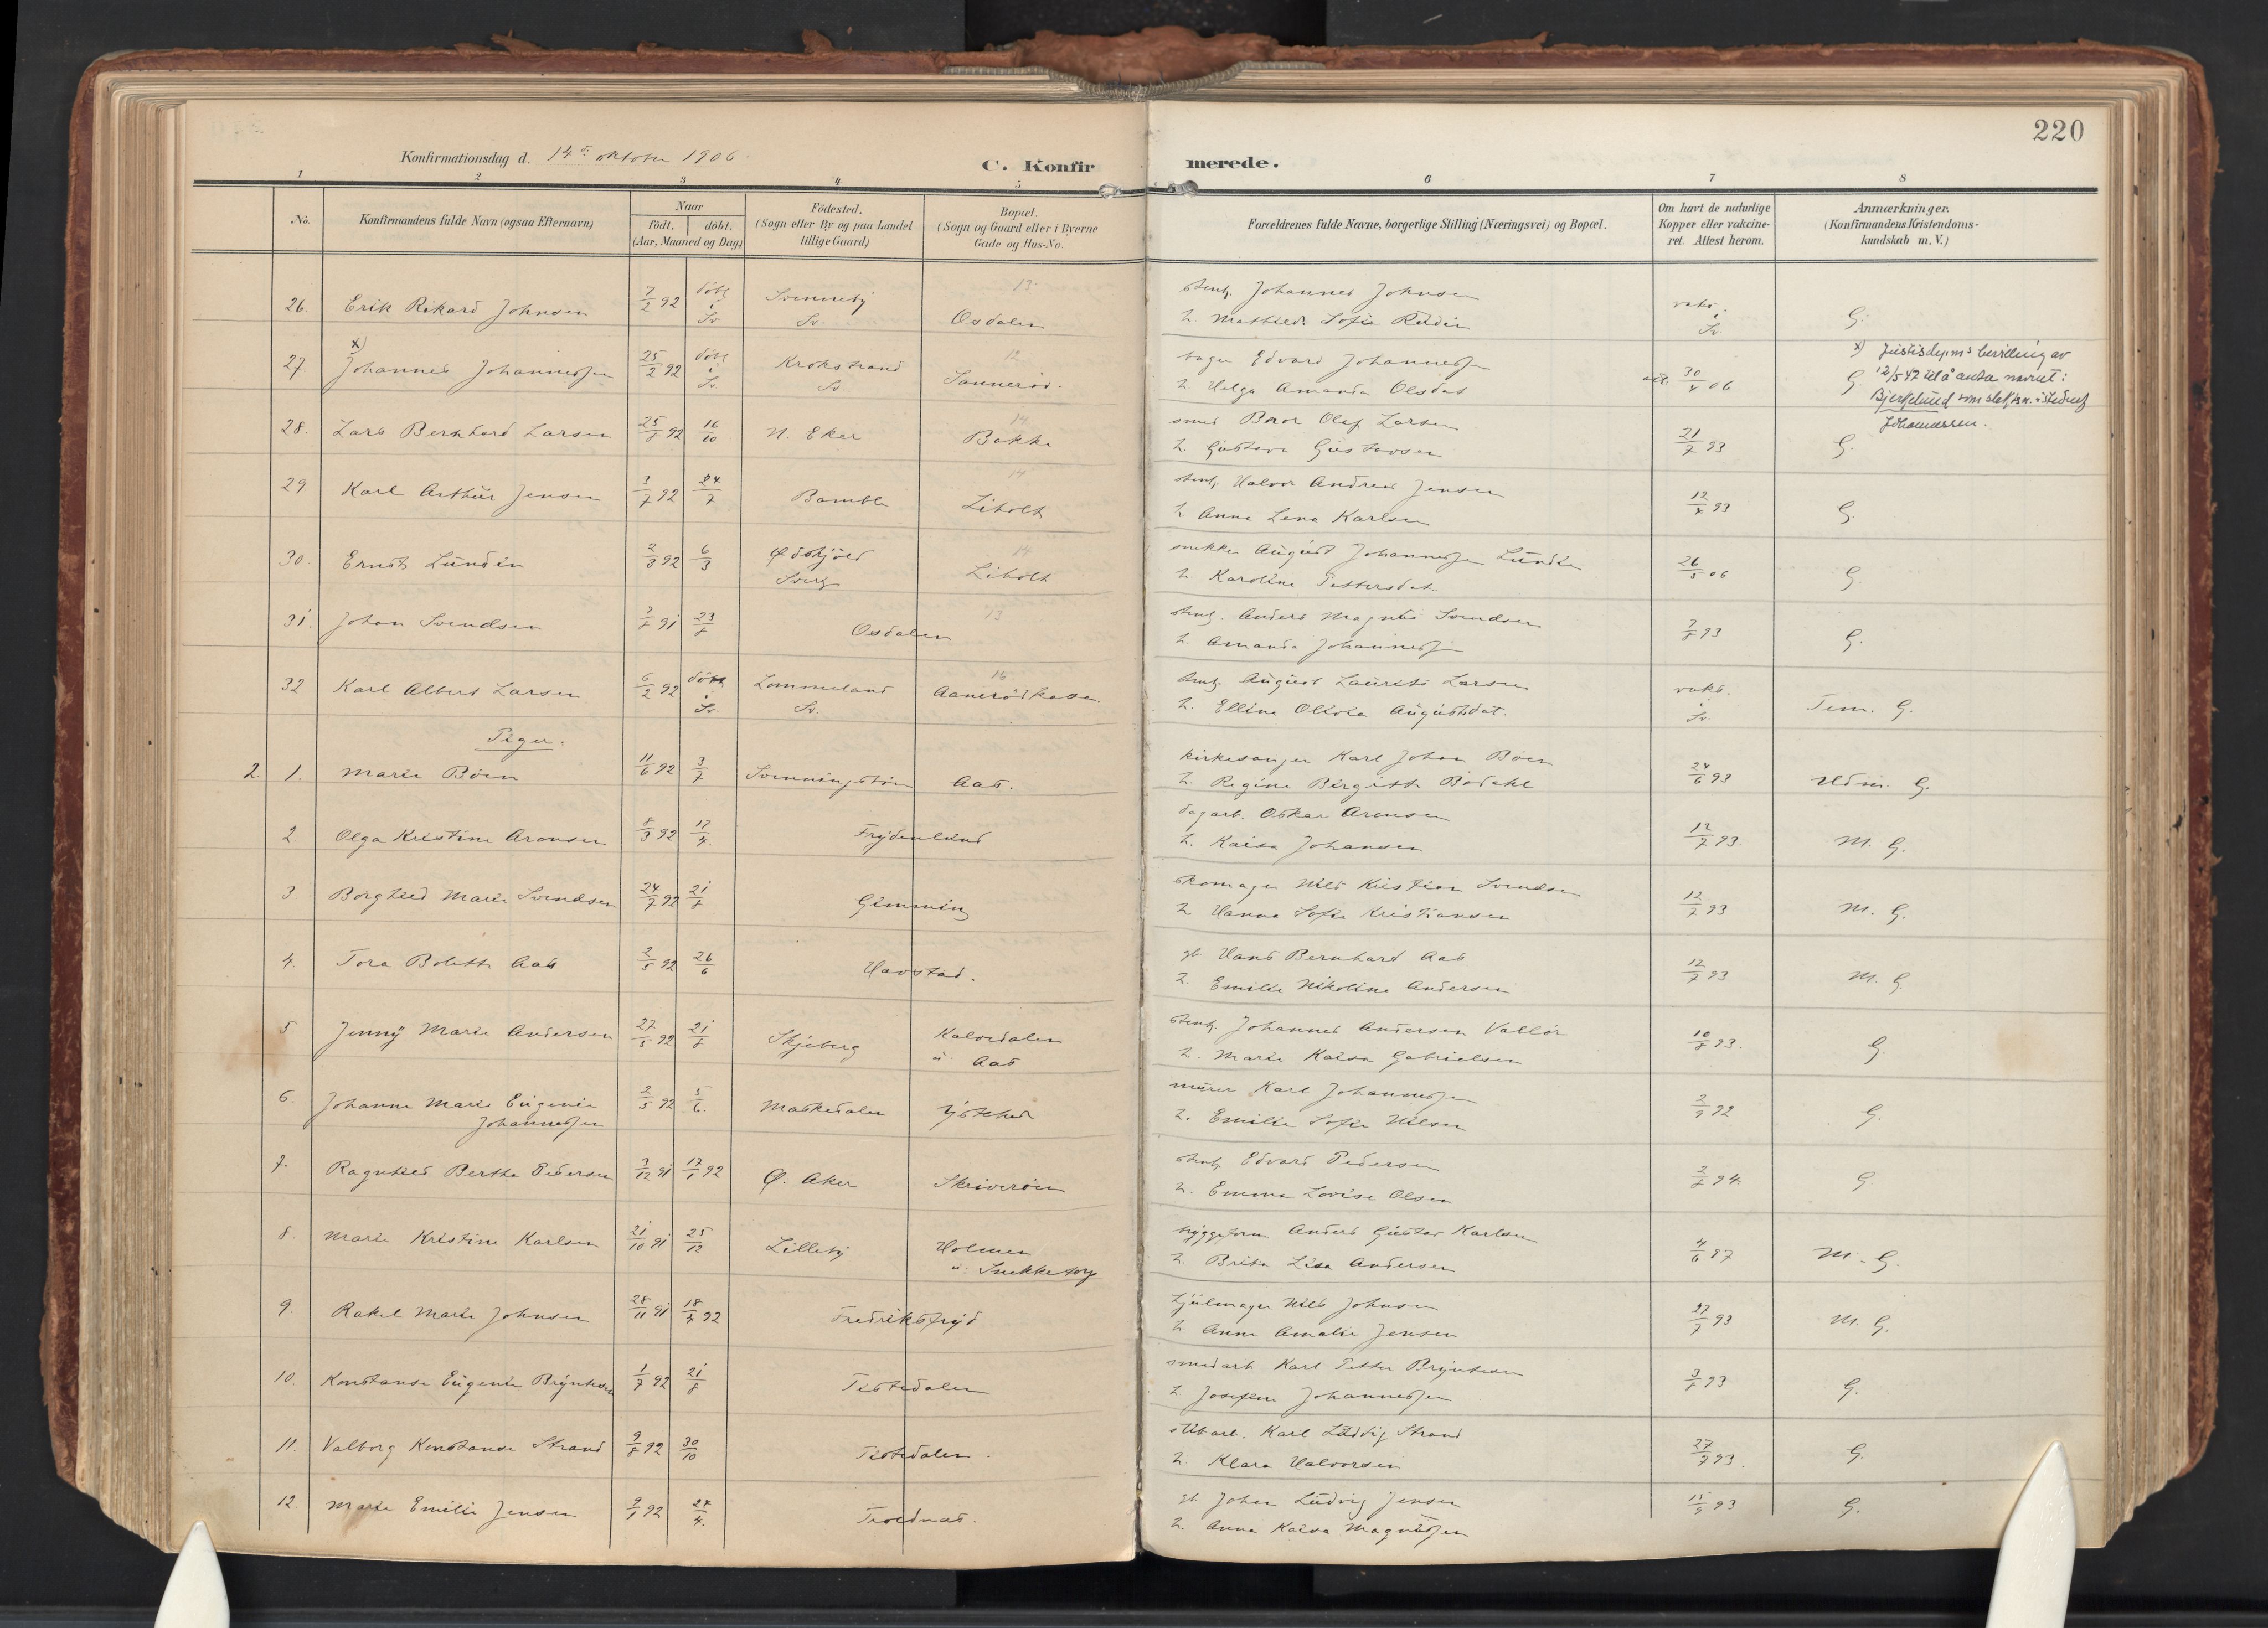 220
Konfirmationsdag d. 14de oktober 1906
C. Konfirmerede.
1 2 3 4 5 6 7 8
No. Konfirmandens fulde Navn (ogsaa Efternavn) Naar født. døbt. (Aar, Maaned og Dag) Fødested. (Sogn eller By og paa Landet tillige Gaard) Bopæl. (Sogn og Gaard eller i Byerne Gade og Hus-No. Forældrenes fulde Navne, borgerlige Stilling (Næringsvei) og Bopæl. Om havt de naturlige Kopper eller vakcineret. Attest herom. Anmærkninger. (Konfirmandens Kristendomskundskab m. V.)
26. Erik Rikard Johnsen 7/2 92 döbt i Sv. Svenneby Sv. 13 Osdalen stenh. Johannes Johnsen
h. Mathilde Sofie Rödin vakc. i Sv. G.
27. x) Johannes Johannessen 25/2 92 döbt i Sv. Krokstrand Sv. 12 Sanneröd. bager Edvard Johannessen
h. Helga Amanda Olsdat att. 30/4 06 G.
x) Justisdepms bevilling av
12/5 47 til å anta navnet:
Bjerkelund som slektsn. istedenf
Johannessen.
28. Lars Bernhard Larsen 25/8 92 16/10 N. Eker 14 Bakke smed Bror Olaf Larsen
h. Gustava Gustavsen 21/7 93 G.
29 Karl Arthur Jensen 3/7 92 24/7 Bamble 14 Liholt stenh. Halvor Andreas Jensen
h. Anna Lena Karlsen 12/4 93 G.
30. Ernst Lundin 2/3 92 6/3 Ødskjöld Sverig 14 Liholt snekker August Johannessen Lundin
h. Karoline Pettersdat. 26/5 06 G.
31. Johan Svendsen 7/8 91 23/8 Osdalen 13 stenh. Anders Magnus Svendsen
h. Amanda Johannessen 7/8 93 G.
32 Karl Albert Larsen 6/2 92 döbt i Sv. Lommeland Sv. 16 Aanerödkasa. stenh. August Laurits Larsen
h. Elline Olivia Augustdat. vakc. i Sv. Tem. G.
Piger.
2. 1. Marie Böen 11/6 92 3/7 Svenningsböen Aas. kirkesanger Karl Johan Böen
h. Regine Birgitte Bödahl 24/6 93 Udm. G.
2. Olga Kristine Aronsen 8/3 92 17/4. Frydenlund dagarb. Oskar Aronsen
h. Kaisa Johansen 12/7 93 M. G.
3. Borghild Marie Svendsen 24/7 92 21/8 Gimming skomager Nils Kristian Svendsen
h. Hanna Sofie Kristiansen 12/7 93 M. G.
4. Tora Bolette Aas 2/5 92 26/6 Havstad. gb. Hans Bernhard Aas
h. Emilie Nikoline Andersen 12/7 93 M. G.
5 Jenny Marie Andersen 27/5 92 21/8 Skjeberg Kalvedalen u. Aas stenh. Johannes Andersen Vallör
h. Marie Kaisa Gabrielsen 10/8 93. G.
6. Johanne Marie Eugenie
Johannessen 2/5 92 5/6. Maskedalen Ystehed murer Karl Johannessen
h. Emilie Sofie Nilsen 2/9 92 G.
7. Ragnhild Bertha Pedersen 3/12 91 17/1 92 Ø. Aker Skriveröen stenh. Edvard Pedersen
h. Emma Lovise Olsen 2/8 94 G
8. Marie Kristine Karlsen 21/10 91 25/12 Lilleby Holmen u. Snekketorp byggeform Anders Gustav Karlsen
h. Brita Lisa Andersen 4/6 97 M. G.
9. Rakel Marie Johnsen 28/11 91 18/4 92 Fredriksfryd hjulmager Nils Johnsen
h. Anne Amalie Jensen 27/7 93 M. G.
10. Konstanse Eugenie Bryntesen 1/7 92 21/8 Tistedalen smedarb Karl Petter Bryntesen
h. Josefine Johannessen 3/8 93 G.
11. Valborg Konstanse Strand 9/8 92 30/10 Tistedalen. slibarb. Karl Luddig Strand
h. Klara Halvorsen 27/7 93. G.
12. Marie Emilie Jensen 9/1 92 24/4. Troldnæs. gb. Johan Ludvig Jensen
h. Anna Kaisa Magnussen 15/9 93 G.